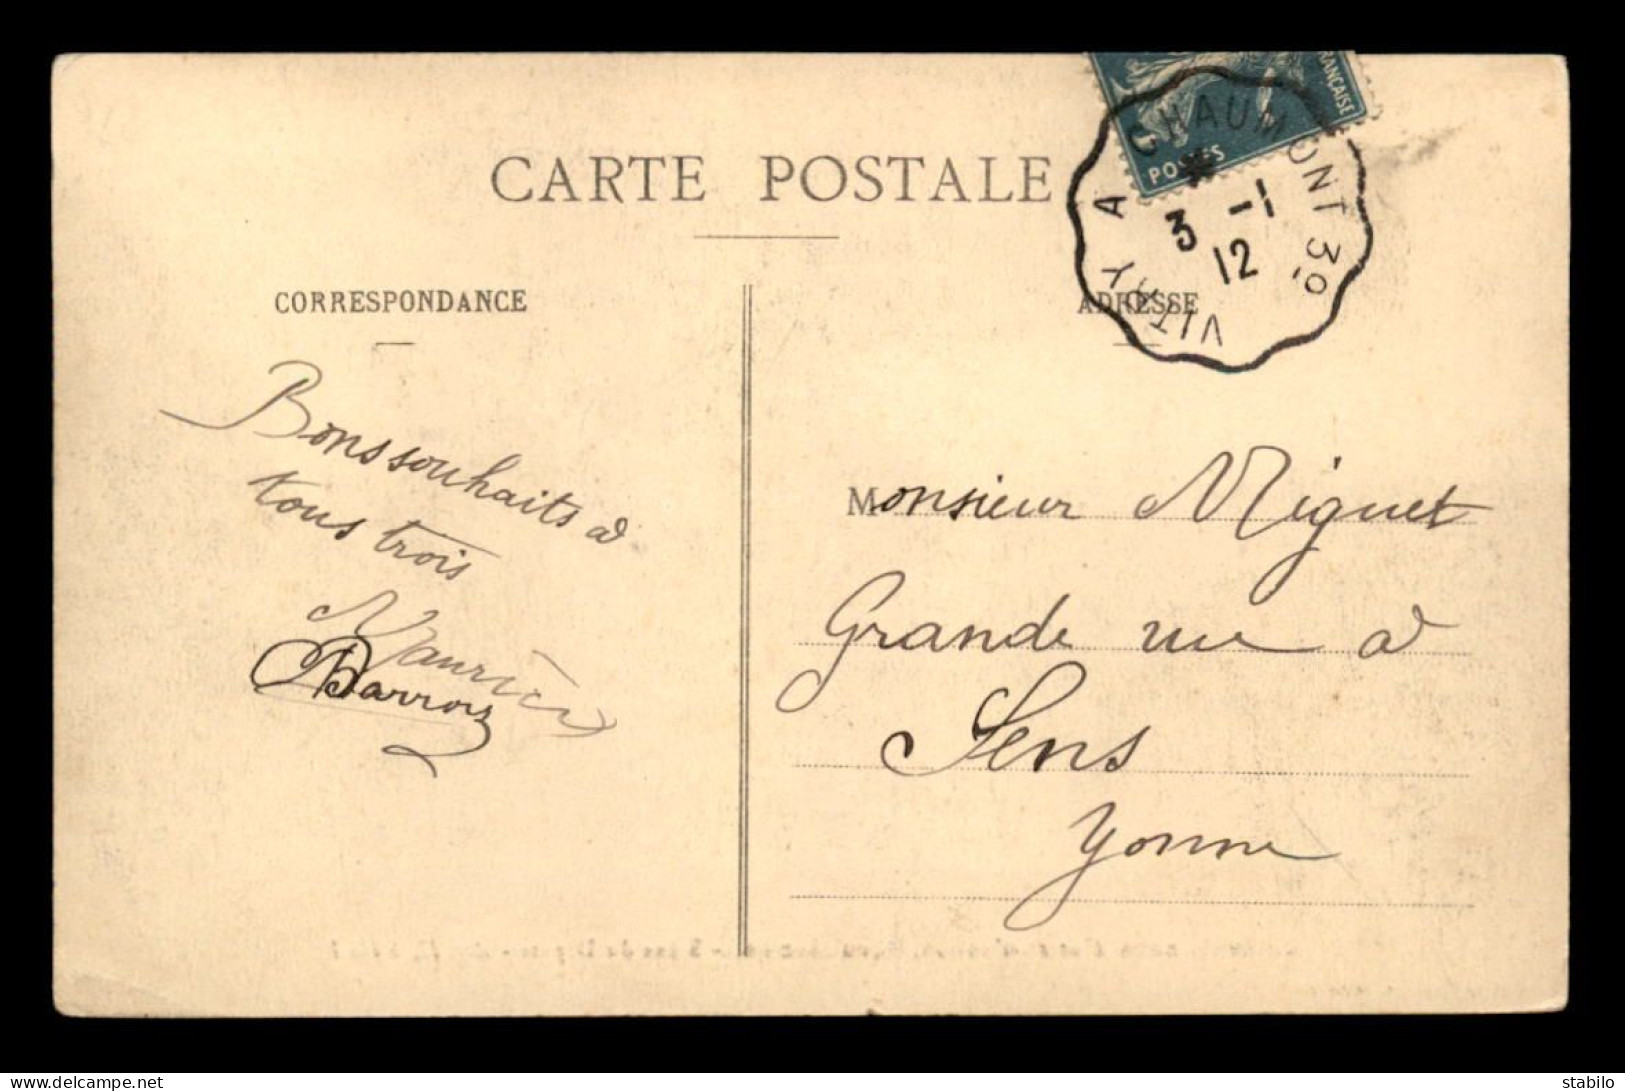 CARTE POSTALE
FRANÇAISE
POSTES
VITRY A CHAUMONT 3º
3 -1
12
CORRESPONDANCE
ADRESSE
Bons souhaits à
tous trois
Maurice
Barrois
Monsieur Miguet
Grande rue à
Sens
Yonne
www.delcampe.net
stabilo